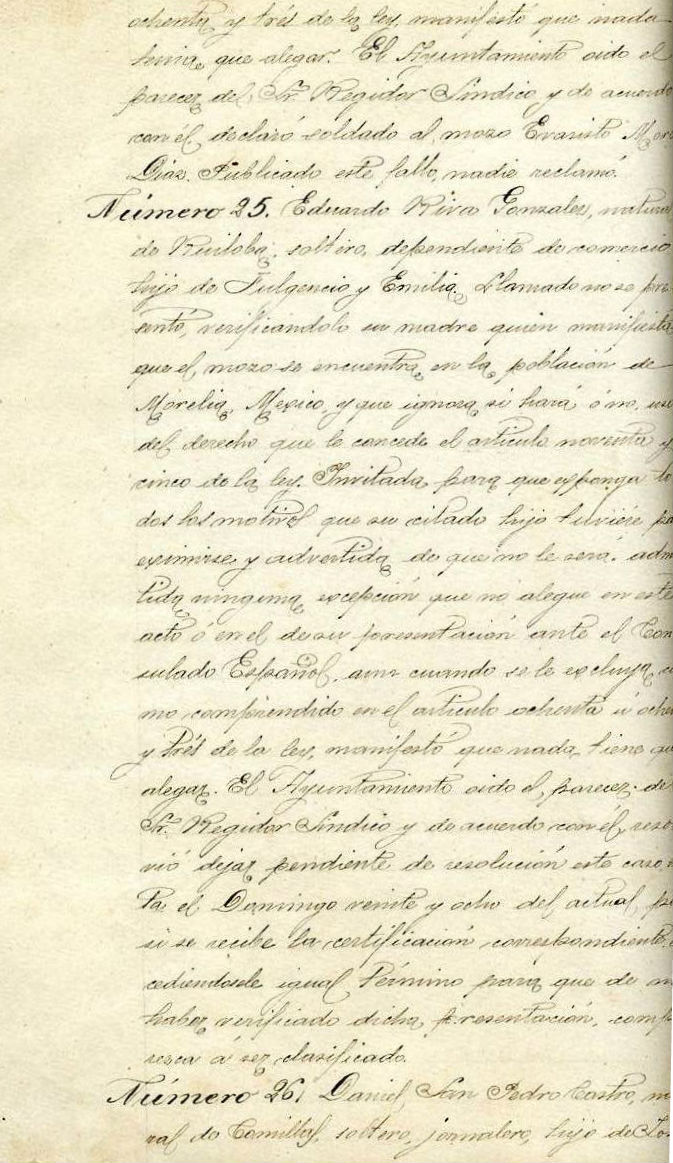 ochenta y trés de la ley, manifestó que nada
tenia que alegar. El Ayuntamiento oido el
parecer del Sr. Regidor Síndico y de acuerdo
con él, declaró soldado al mozo Evaristo Mor
Diaz. Publicado este fallo, nadie reclamó.
Número 25. Eduardo Riva Gonzalez, natura
de Ruiloba, soltero, dependiente de comercio
hijo de Fulgencio y Emilia. Llamado no se pre-
sentó, verificandolo su madre quien manifiesta
que el mozo se encuentra en la población de
Morelia, Mexico, y que ignora si hará ó no, uso
del derecho que le concede el artículo noventa y
cinco de la ley. Invitada para que exponga to
dos los motivos que su citado hijo tuviére pa
eximirse y advertida de que no le será adm
tida ninguna excepción que no alegue en este
acto ó en el de su presentación ante el Con
sulado Español, aun cuando se le excluya co
mo comprendido en el artículo ochenta ú oche
y trés de la ley, manifestó que nada tiene qu
alegar. El Ayuntamiento oido el parecer del
Sr. Regidor Síndico y de acuerdo con él, resol
vió dejar pendiente de resolución este caso
ta el Domingo veinte y ocho del actual, po
si se recibe la certificación correspondiente,
cediendosele igual término para que de n
haber verificado dicha presentación, comp
resca á ser clasificado.
Número 26. Daniel San Pedro Castro, n
ral de Comillas, soltero, jornalero, hijo de Jos